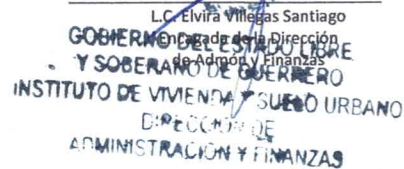 L.C. Elvira Villegas Santiago
Encagada de la Dirección
de Admón y Finanzas
GOBIERNO DEL ESTADO LIBRE
Y SOBERANO DE GUERRERO
INSTITUTO DE VIVIENDA Y SUELO URBANO
DIRECCION DE
ADMINISTRACION Y FINANZAS